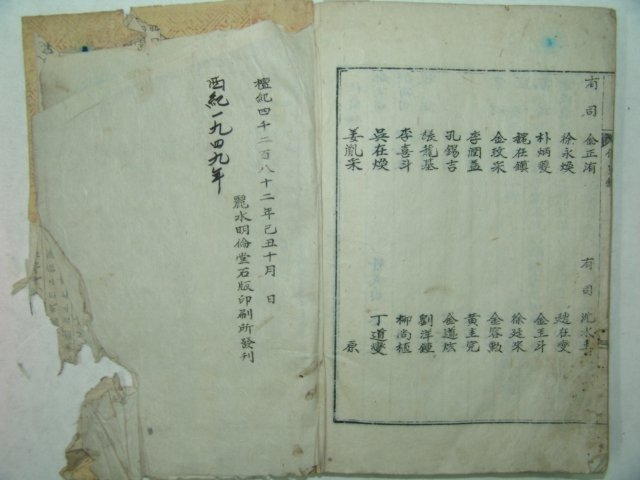 有司 金正洧
徐永煥
朴炳燮
魏在鎮
金玟宋
李潤益
孔錫吉
張龍基
李喜斗
吳在煥
姜胤宋
有司
趙在燮
金玉斗
徐廷宋
金容勲
黃圭完
金道炫
劉洋鍾
柳尚植
丁道燮
原
檀紀四千二百八十二年己丑十月 日
麗水明倫堂石版印刷所發刊
西紀一九四九年